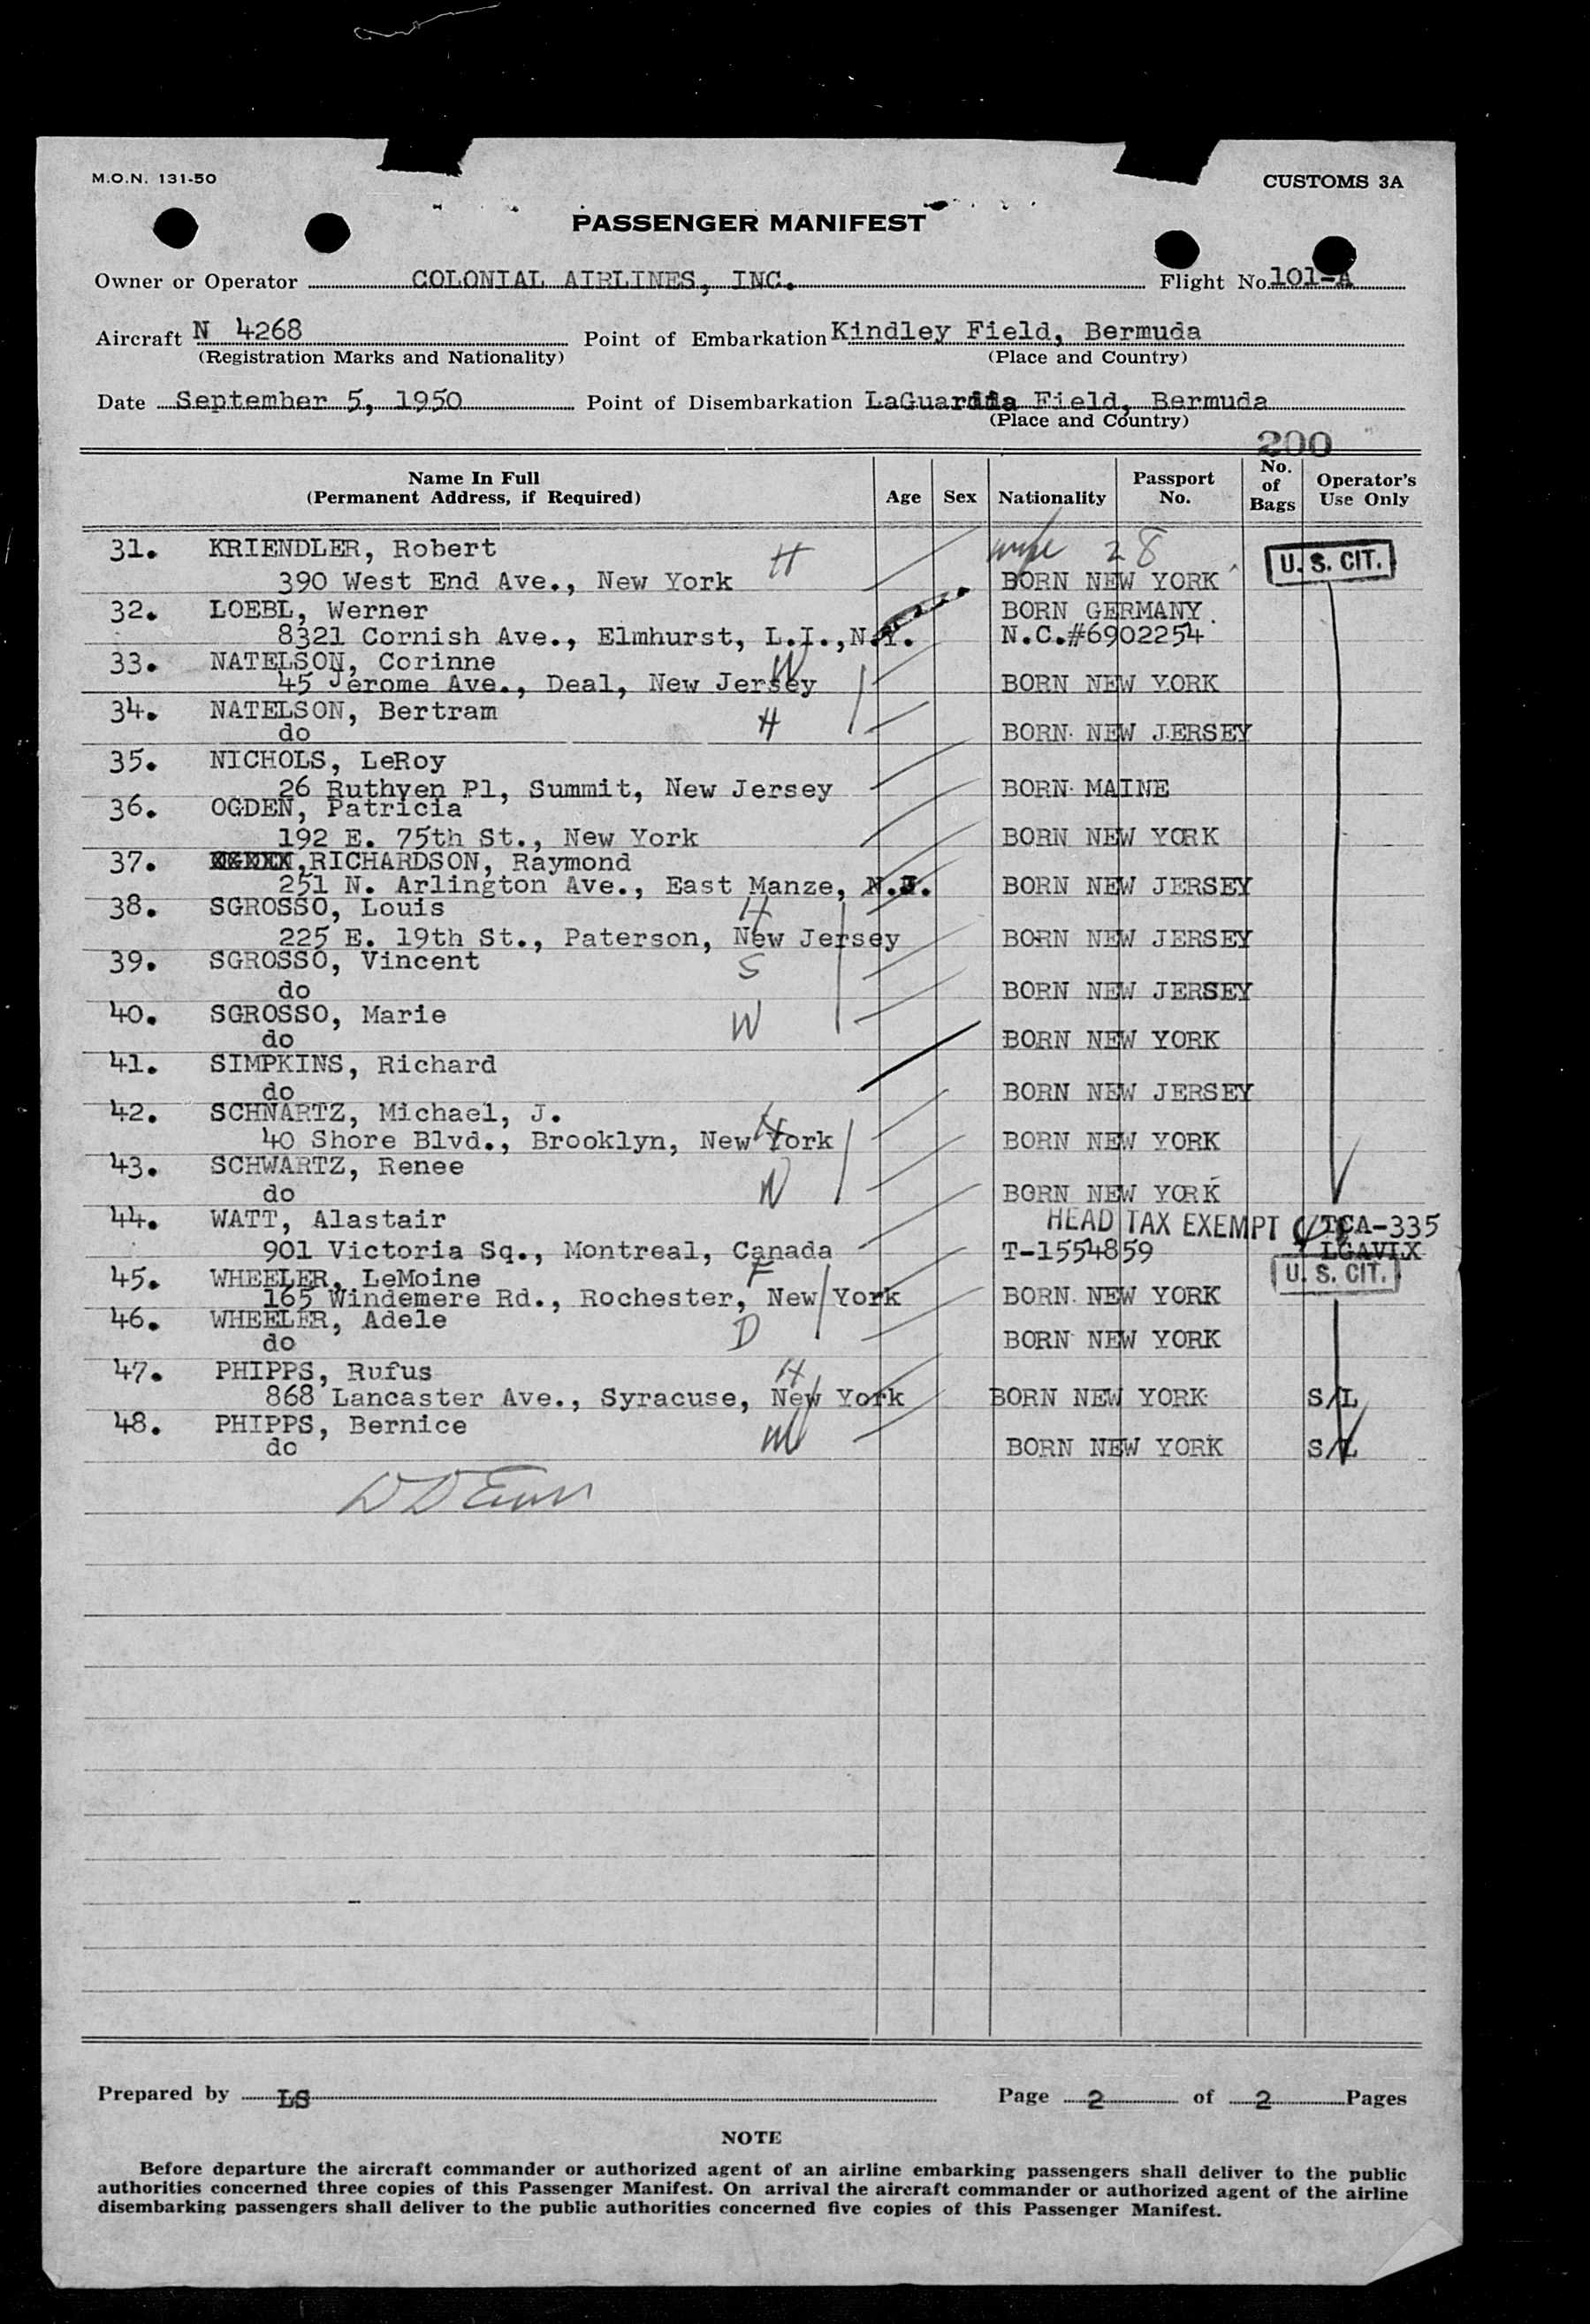 M.O.N. 131-50
CUSTOMS 3A
PASSENGER MANIFEST
Owner or Operator COLONIAL AIRLINES, INC. Flight No. 101-A
Aircraft N 4268 Point of Embarkation Kindley Field, Bermuda
(Registration Marks and Nationality) (Place and Country)
Date September 5, 1950 Point of Disembarkation LaGuardia Field, Bermuda
(Place and Country)
200
Name In Full (Permanent Address, if Required) Age Sex Nationality Passport No. No. of Bags Operator's Use Only
31. KRIENDLER, Robert H wife 28 U. S. CIT.
390 West End Ave., New York BORN NEW YORK
32. LOEBL, Werner BORN GERMANY.
8321 Cornish Ave., Elmhurst, L.I.,N.Y. N.C.#6902254
33. NATELSON, Corinne W
45 Jerome Ave., Deal, New Jersey BORN NEW YORK
34. NATELSON, Bertram H
do BORN NEW JERSEY
35. NICHOLS, LeRoy
26 Ruthven Pl, Summit, New Jersey BORN MAINE
36. OGDEN, Patricia
192 E. 75th St., New York BORN NEW YORK
37. RICHARDSON, Raymond
251 N. Arlington Ave., East Manze, N.J. BORN NEW JERSEY
38. SGROSSO, Louis H
225 E. 19th St., Paterson, New Jersey BORN NEW JERSEY
39. SGROSSO, Vincent S
do BORN NEW JERSEY
40. SGROSSO, Marie W
do BORN NEW YORK
41. SIMPKINS, Richard
do BORN NEW JERSEY
42. SCHNARTZ, Michael, J. H
40 Shore Blvd., Brooklyn, New York BORN NEW YORK
43. SCHWARTZ, Renee W
do BORN NEW YORK
44. WATT, Alastair HEAD TAX EXEMPT TCA-335
901 Victoria Sq., Montreal, Canada T-1554859 LGAVLX
45. WHEELER, LeMoine F U. S. CIT.
165 Windemere Rd., Rochester, New York BORN NEW YORK
46. WHEELER, Adele D
do BORN NEW YORK
47. PHIPPS, Rufus H
868 Lancaster Ave., Syracuse, New York BORN NEW YORK S/L
48. PHIPPS, Bernice W
do BORN NEW YORK S/L
Prepared by LS Page 2 of 2 Pages
NOTE
Before departure the aircraft commander or authorized agent of an airline embarking passengers shall deliver to the public
authorities concerned three copies of this Passenger Manifest. On arrival the aircraft commander or authorized agent of the airline
disembarking passengers shall deliver to the public authorities concerned five copies of this Passenger Manifest.